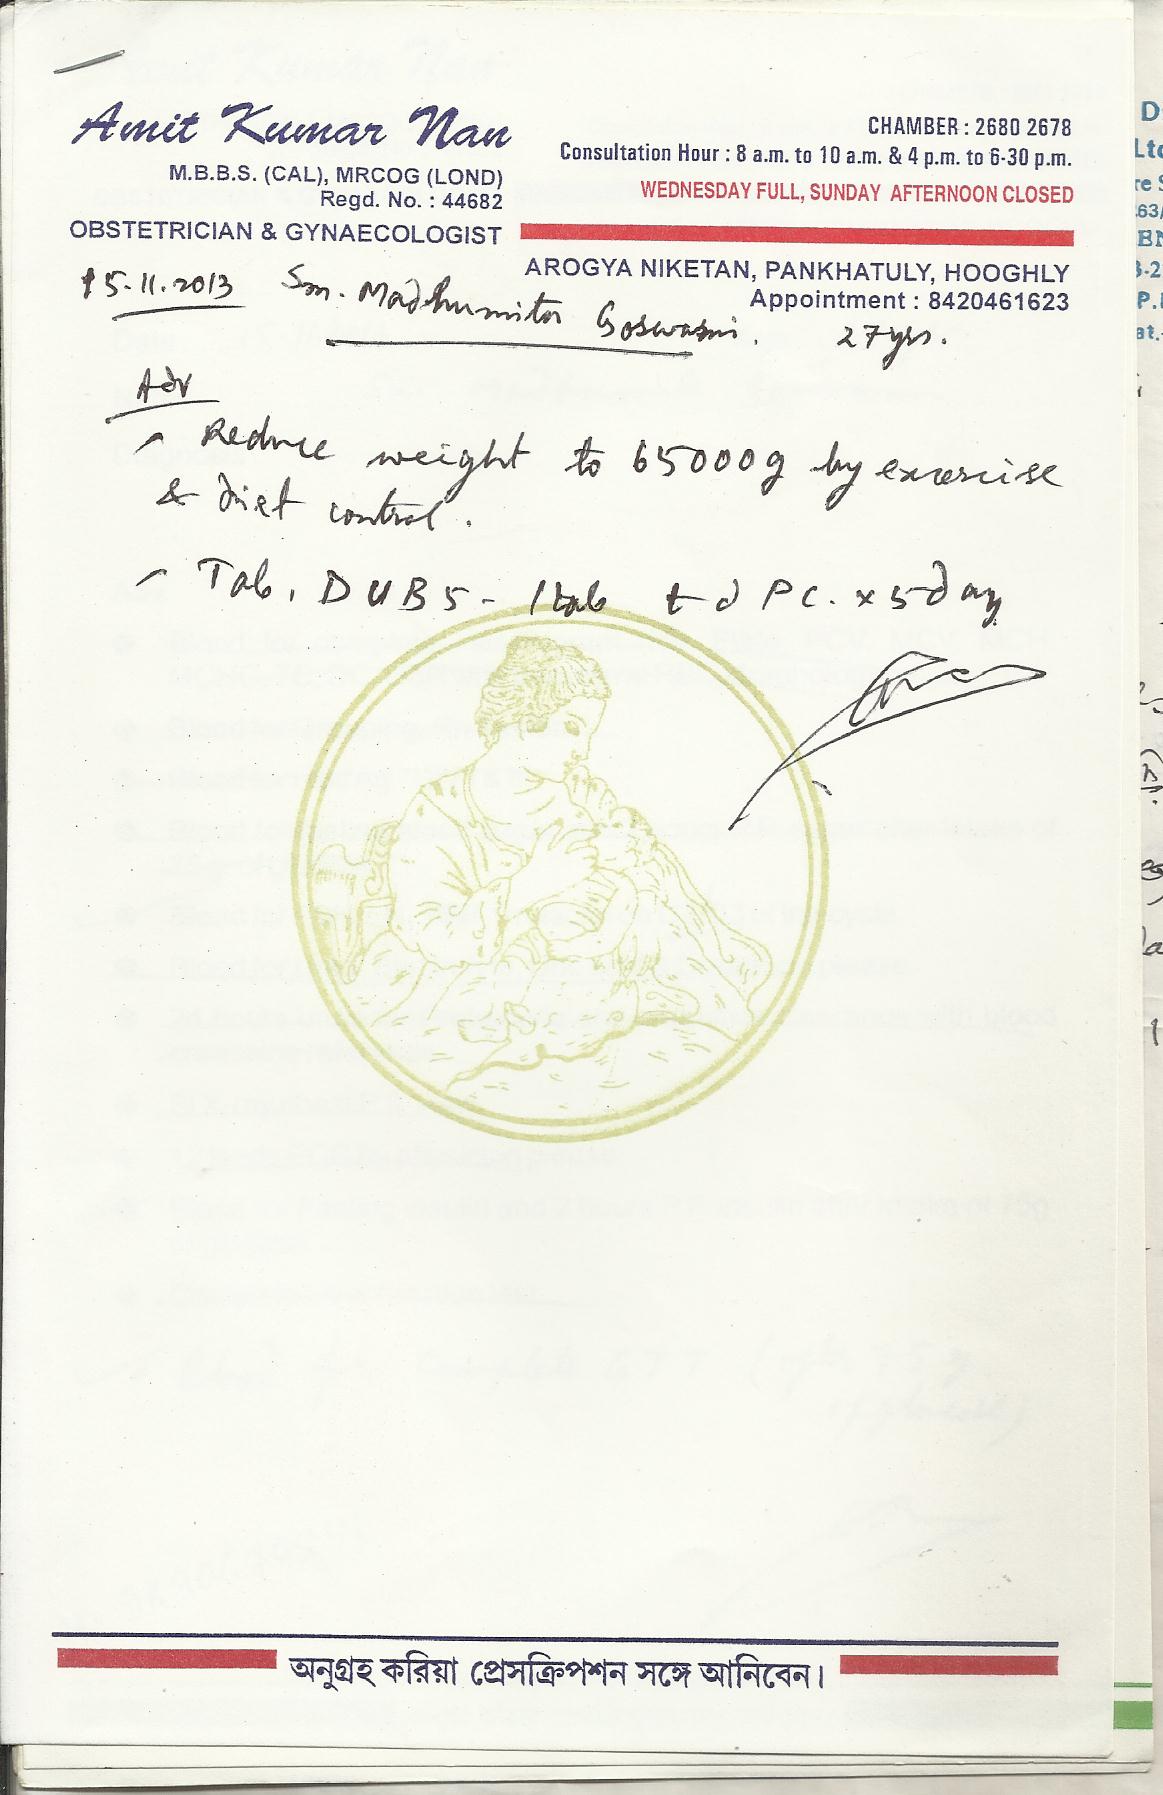 Amit Kumar Nan
M.B.B.S. (CAL), MRCOG (LOND)
Regd. No. : 44682
OBSTETRICIAN & GYNAECOLOGIST
CHAMBER : 2680 2678
Consultation Hour : 8 a.m. to 10 a.m. & 4 p.m. to 6-30 p.m.
WEDNESDAY FULL, SUNDAY AFTERNOON CLOSED
AROGYA NIKETAN, PANKHATULY, HOOGHLY
Appointment : 8420461623
15.11.2013 Sm. Madhumita Goswami. 27yrs.
Adv
- Reduce weight to 65000g by exercise
& diet control.
- Tab. DUB 5 - 1 tab td PC. x 5 day
অনুগ্রহ করিয়া প্রেসক্রিপশন সঙ্গে আনিবেন।